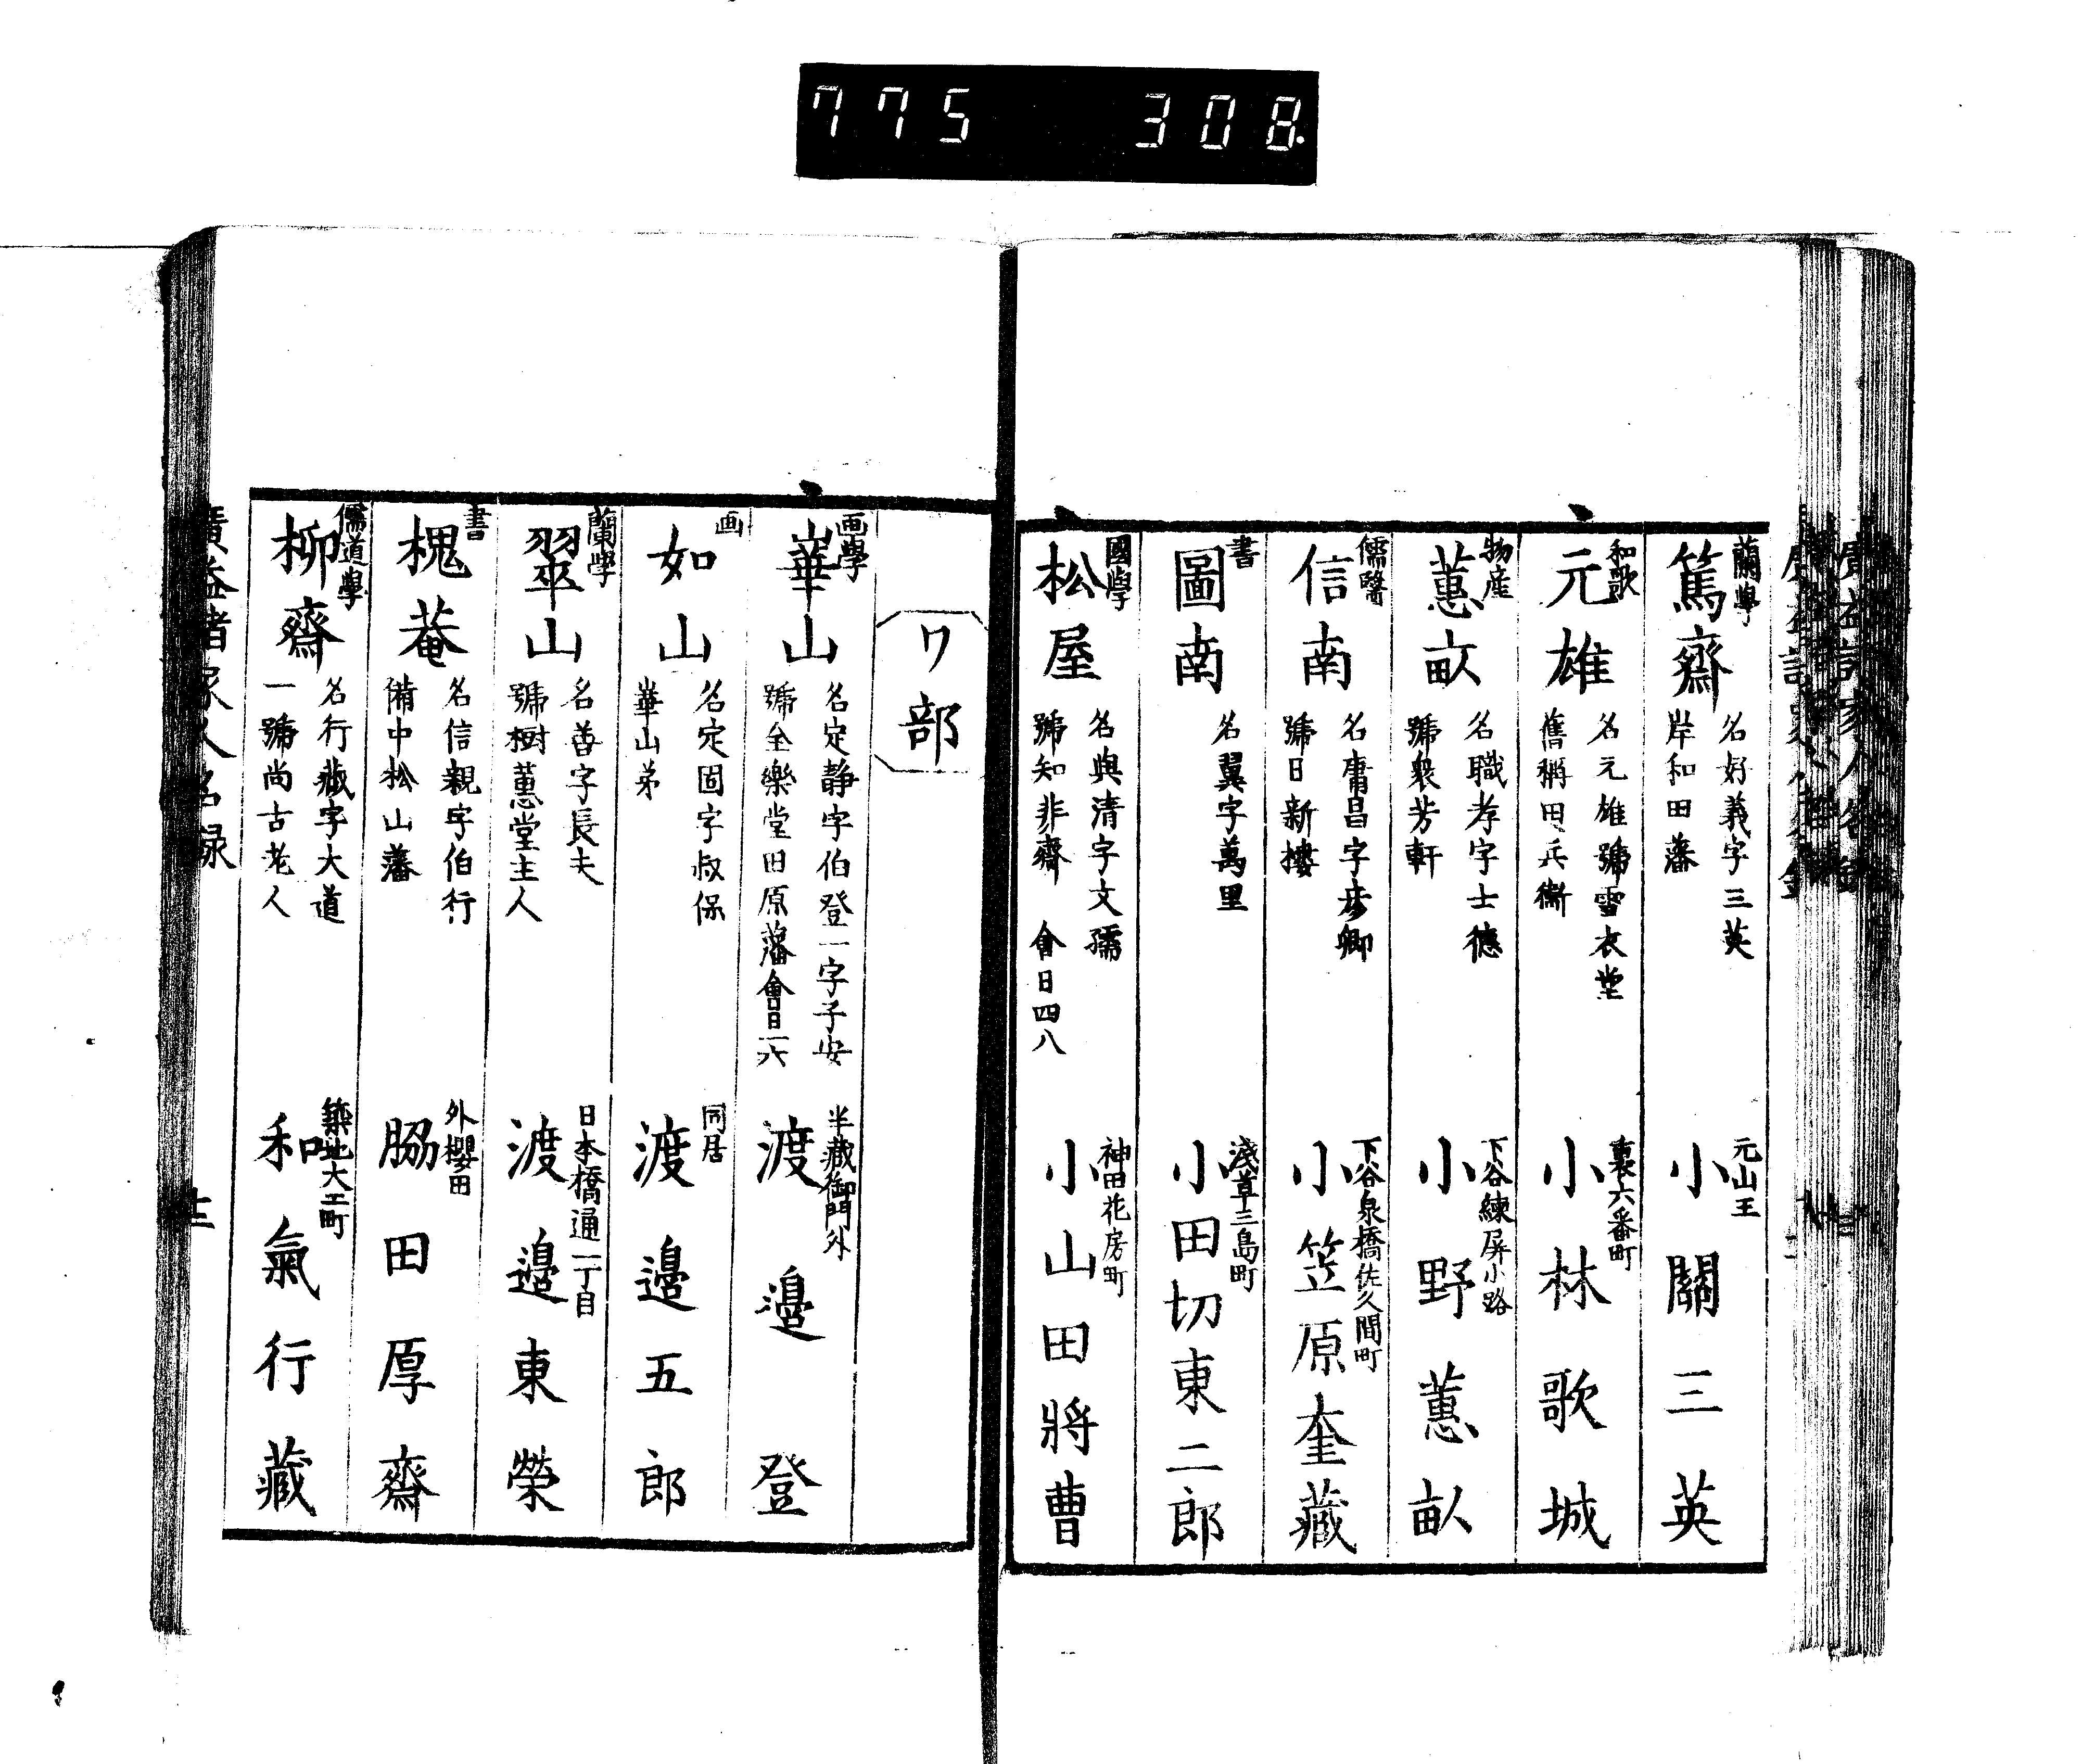 775 308
蘭學
篤齋
名好義字三英
岸和田藩
元山王
小關三英
和歌
元雄
名元雄號雪衣堂
舊稱田兵衞
裏六番町
小林歌城
物産
蕙畝
名職孝字士德
號衆芳軒
下谷練屏小路
小野蕙畝
儒醫
信南
名庸昌字彦卿
號日新樓
下谷泉橋佐久間町
小笠原奎藏
書
圖南
名翼字萬里
淺草三島町
小田切東二郎
國學
松屋
名與清字文孺
號知非齋 會日四八
神田花房町
小山田將曹
ワ部
画學
崋山
名定静字伯登一字子安
號全樂堂田原藩會日一六
半藏御門外
渡邉登
画
如山
名定固字叔保
崋山弟
同居
渡邉五郎
蘭學
翠山
名善字長夫
號樹蕙堂主人
日本橋通二丁目
渡邉東榮
書
槐菴
名信親字伯行
備中松山藩
外櫻田
脇田厚齋
儒道學
柳齋
名行藏字大道
一號尚古老人
築地大工町
和氣行藏
廣益諸家人名録